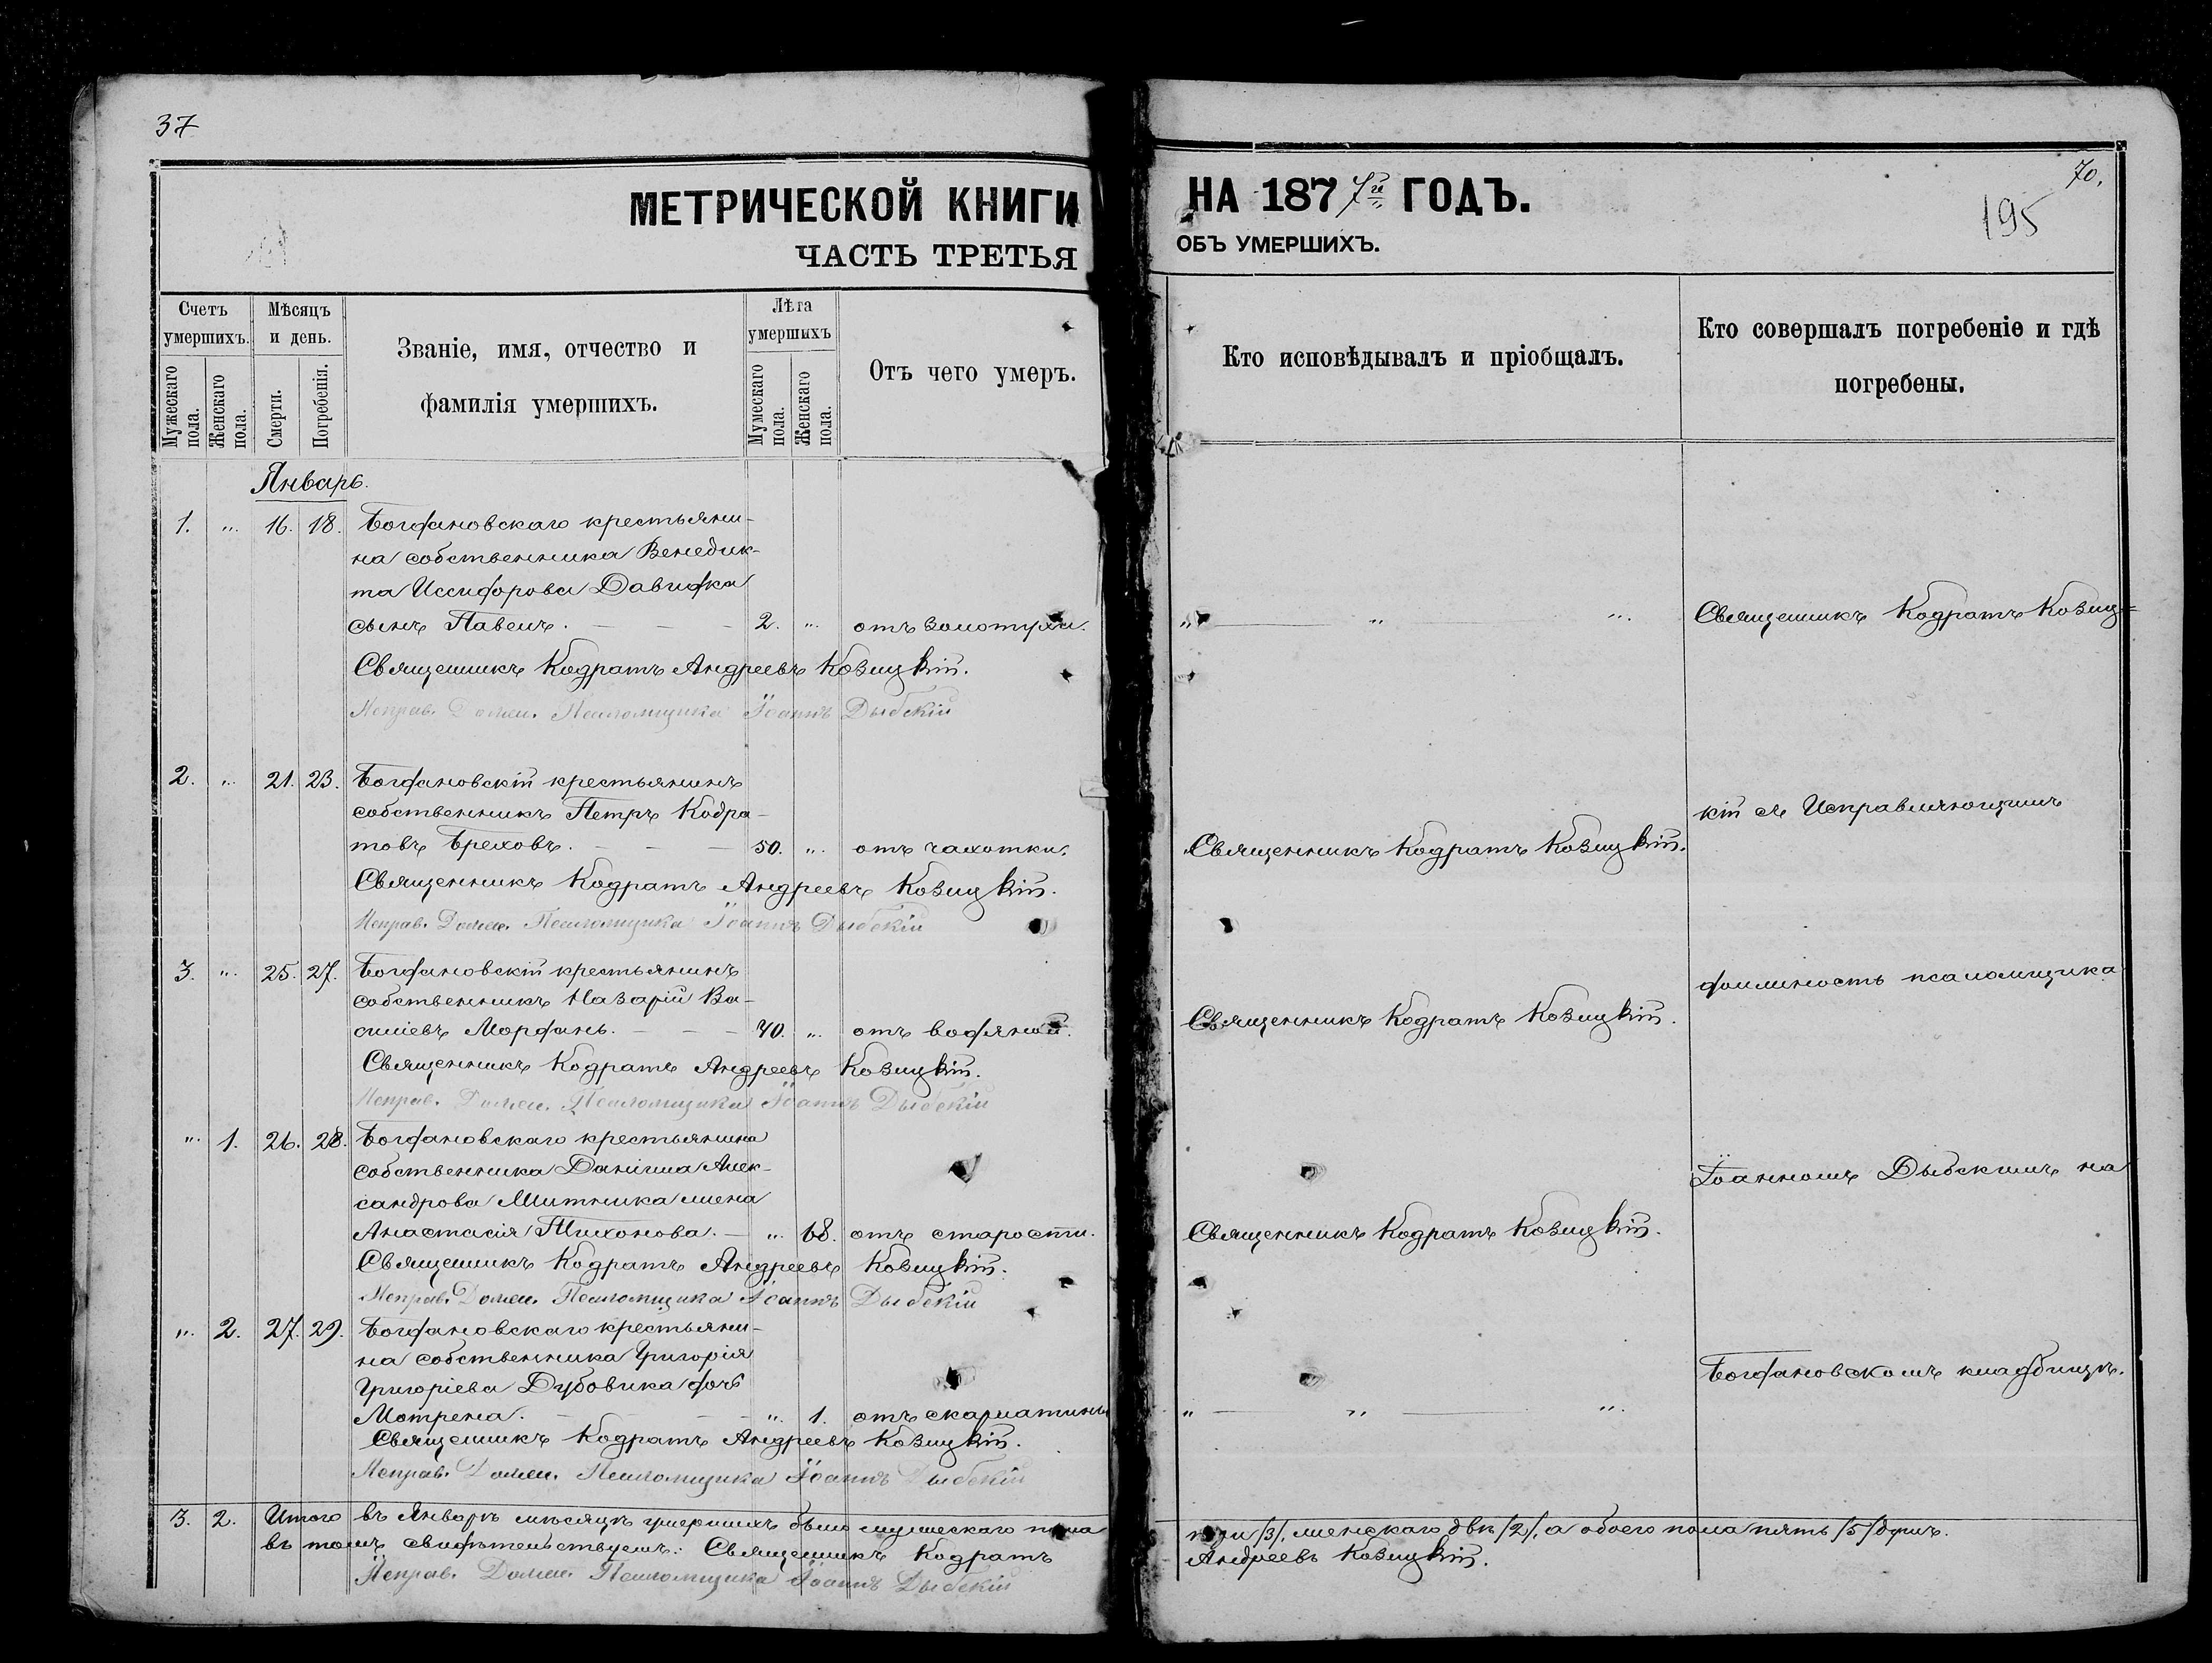 37
МЕТРИЧЕСКОЙ КНИГИ
ЧАСТЬ ТРЕТЬЯ
Счетъ умершихъ.
Мужескаго пола.
Женскаго пола.
Мѣсяцъ и день.
Смерти.
Погребенія.
Званіе, имя, отчество и
фамилія умершихъ.
Лѣта умершихъ
Мужескаго пола.
Женскаго пола.
Отъ чего умеръ.
Январь.
1. „ 16. 18. Богдановскаго крестьяни-
на собственника Венедик-
та Иссифорова Давидка
сынъ Павелъ. 2. „ отъ золотухи.
Священникъ Кодратъ Андреевъ Козицкій.
Исправ. Должн. Псаломщика Іоаннъ Дыбскій
2. „ 21. 23. Богдановскій крестьянинъ
собственникъ Петръ Кодра-
товъ Бреховъ. 50. „ отъ чахотки.
Священникъ Кодратъ Андреевъ Козицкій.
Исправ. Должн. Псаломщика Іоаннъ Дыбскій
3. „ 25. 27. Богдановскій крестьянинъ
собственникъ Назарій Ва-
силіевъ Морданъ. 40. „ отъ водяной.
Священникъ Кодратъ Андреевъ Козицкій.
Исправ. Должн. Псаломщика Іоаннъ Дыбскій
„ 1. 26. 28. Богдановскаго крестьянина
собственника Даніила Алек-
сандрова Митника жена
Анастасія Тихонова. „ 68. отъ старости.
Священникъ Кодратъ Андреевъ Козицкій.
Исправ. Должн. Псаломщика Іоаннъ Дыбскій
„ 2. 27. 29. Богдановскаго крестьяни-
на собственника Григорія
Григоріева Дубовика дочь
Мотрена. „ 1. отъ скарлатины
Священникъ Кодратъ Андреевъ Козицкій.
Исправ. Должн. Псаломщика Іоаннъ Дыбскій
3. 2. Итого въ Январѣ мѣсяцѣ умершихъ было мужескаго пола
въ томъ свидѣтельствуемъ: Священникъ Кодратъ
Исправ. Должн. Псаломщика Іоаннъ Дыбскій
НА 1877й ГОДЪ.
ОБЪ УМЕРШИХЪ.
70.
195
Кто исповѣдывалъ и пріобщалъ.
Кто совершалъ погребеніе и гдѣ
погребены.
„ „ „ Священникъ Кодратъ Козиц=
кій съ Исправляющимъ
Священникъ Кодратъ Козицкій.
должность псаломщика
Священникъ Кодратъ Козицкій.
Іоанномъ Дыбскимъ на
Священникъ Кодратъ Козицкій.
Богдановскомъ кладбищѣ.
„ „ „
три /3/, женскаго двѣ /2/, а обоего пола пять /5/ душъ.
Андреевъ Козицкій.